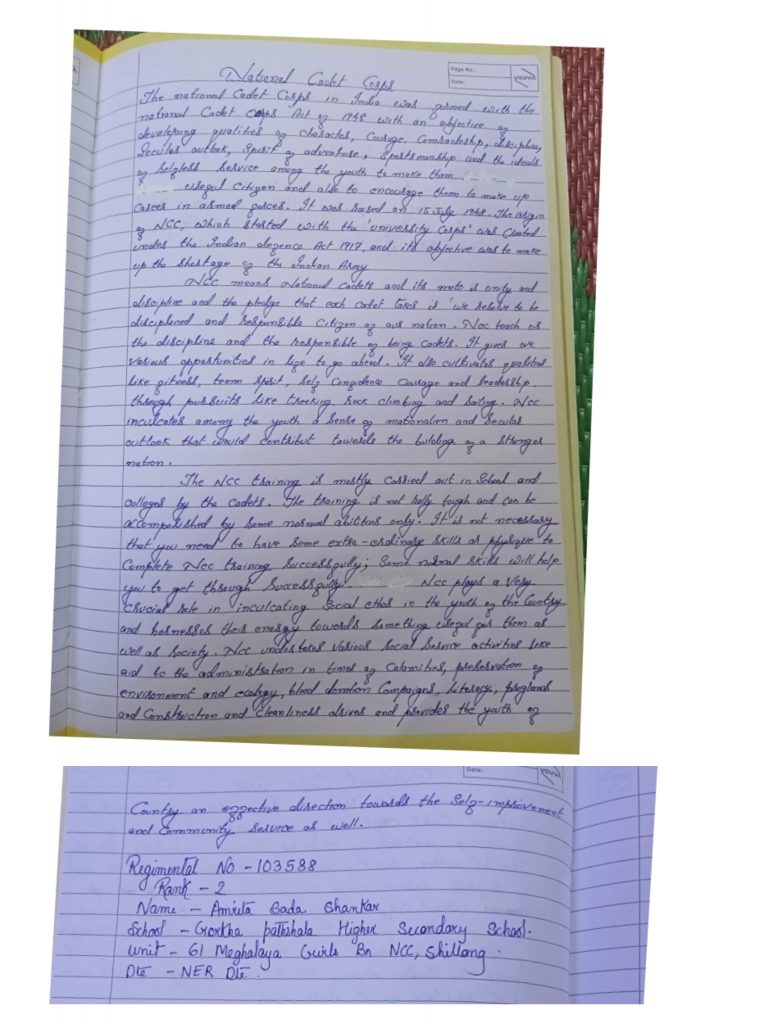 Page No.:
Date:
youva
National Cadet Corps
The national Cadet Corps in India was formed with the
national Cadet Corps Act of 1948 with an objective of
developing qualities of character, Courage, Comradeship, discipline,
Secular outlook, Spirit of adventure, Sportsmanship and the ideals
of Selfless Service among the youth to make them
useful Citizen and also to encourage them to make up
Career in armed forces. It was raised on 15 July 1948. The origin
of NCC, which started with the 'university Corps' was Created
under the Indian defence Act 1917, and its objective was to make
up the Shortage of the Indian Army
NCC means National Cadets and its moto is unity and
discipline and the pledge that each cadet takes is 'we resolve to be
disciplened and responsible Citizen of our nation. Ncc teach us
the discipline and the responsible of being Cadets. It gives we
various opportunities in life to go ahead. It also cultivates qualities
like fitness, team Spirit, Self Confidence Courage and leadership
through pursuits like treeking rock climbing and Sailing. Ncc
inculcates among the youth a Sense of nationalion and Secular
outlook that would contribut towards the building of a Stronger
nation.
The Ncc training is mostly Carried out in School and
colleges by the cadets. The training is not really tough and can be
accompolished by Some normal abilities only. It is not necessary
that you need to have Some extra-ordinary Skills or physique to
Complete Ncc training Successfully; Some normal Skills will help
you to get through Successfully. NCC plays a very
Crucial role in inculcating Social ethos in the youth of the Country
and harnesses their energy towards Something useful for them as
well as Society. Ncc undertakes various Social Service activities like
aid to the administration in time of Calamities, preservation of
environment and ecology, blood donation Campaigns, Literacy, programs
and Construction and Cleanliness drives and provides the youth of
Date:
youva
Country an effective direction towards the Self-improvement
and Community Service as well.
Regimental No - 103588
Rank - 2
Name - Amrita Sada Shankar
School - Gorkha pathshala Higher Secondary School.
Unit - 61 Meghalaya Girls Bn NCC, Shillong.
Dte - NER Dte.